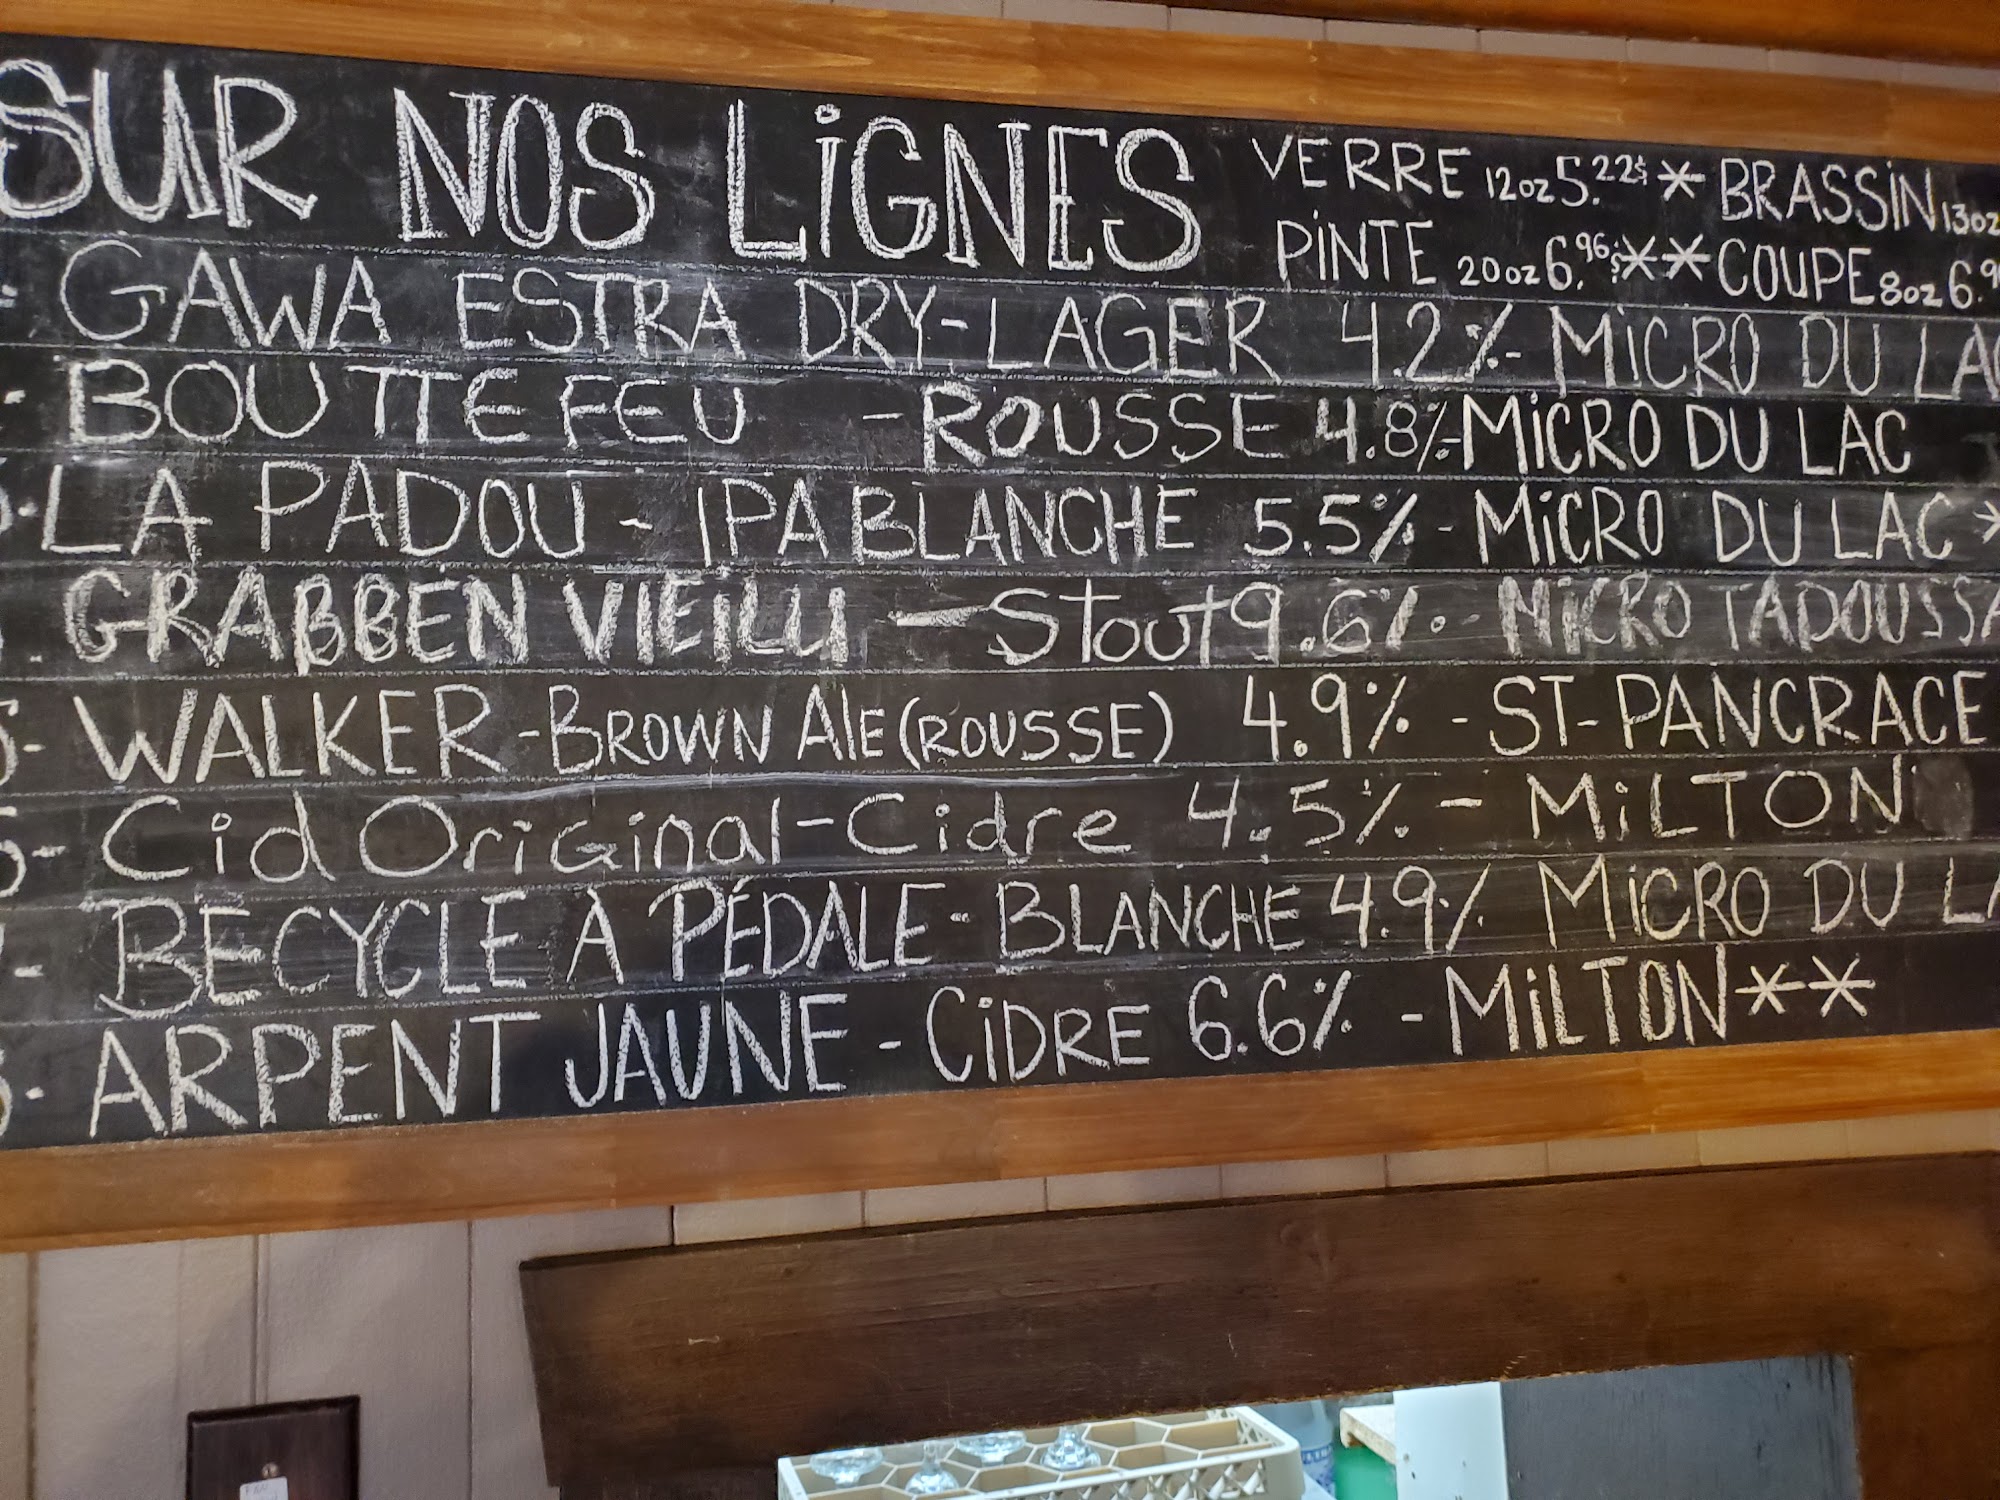 SUR NOS LiGNES
VERRE 12oz 5.22$ * BRASSiN 13oz
PiNTE 20oz 6.96$ ** COUPE 8oz 6.9
- GAWA ESTRA DRY-LAGER 4.2%- MiCRO DU LAC
- BOUTTEFEU - ROUSSE 4.8%-MiCRO DU LAC
- LA PADOU - IPA BLANCHE 5.5% - MiCRO DU LAC *
. GRABBEN VIEiLLi - STout 9.6% - MiCRO TADOUSSA
5- WALKER - BROWN ALE (ROUSSE) 4.9% - ST-PANCRACE
6- Cid Original - Cidre 4.5% - MiLTON
- BECYCLE À PÉDALE - BLANCHE 4.9% MiCRO DU LA
8- ARPENT JAUNE - CiDRE 6.6% - MiLTON**